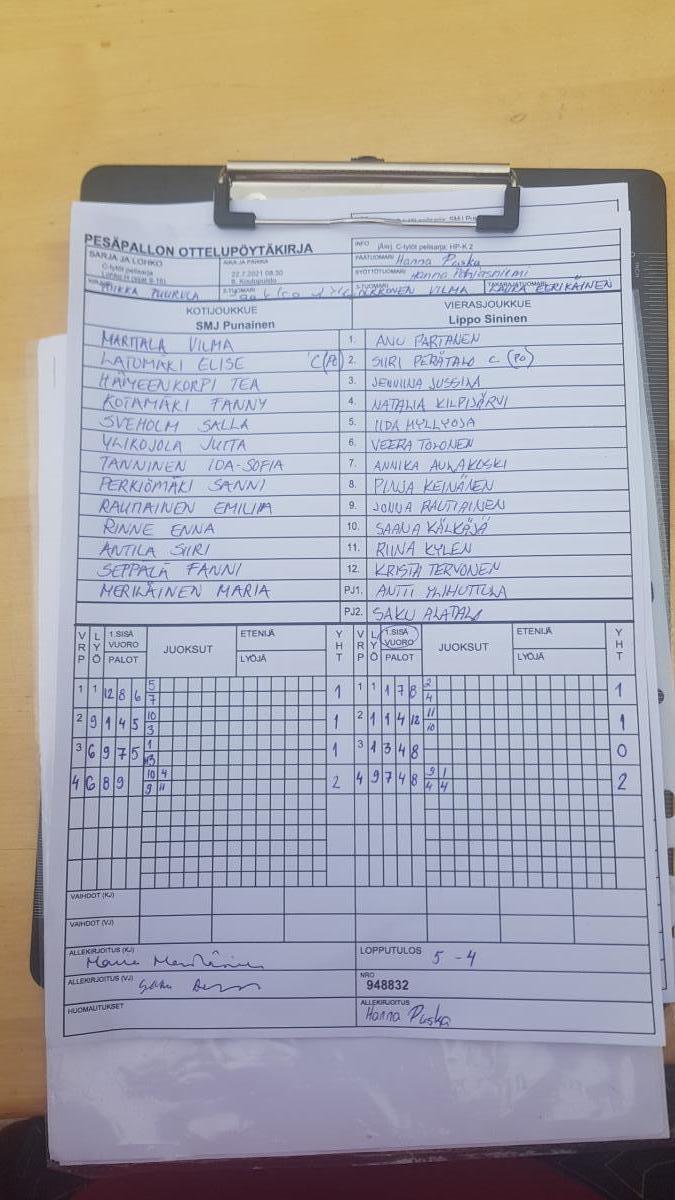 PESÄPALLON OTTELUPÖYTÄKIRJA
INFO (Äw), C-tytöt pelisarja: HP-K 2
SARJA JA LOHKO
C-tytöt pelisarja
AIKA JA PAIKKA
22.7.2021 08:30
PÄÄTUOMARI Hanna Puska
SYÖTTÖTUOMARI Hanna Pohjasniemi
2-TUOMARI
3-TUOMARI
VILMA
KOTIJOUKKUE
SMJ Punainen
VIERASJOUKKUE
Lippo Sininen
MARTTALA VILMA 1. ANU PARTANEN
LATOMÄKI ELISE C(PO) 2. SIIRI PERÄTALO C (PO)
HÄMEENKORPI TEA 3. JENNIINA JUSSILA
KOTAMÄKI FANNY 4. NATALIA KILPIJÄRVI
SVEHOLM SALLA 5. IIDA MYLLYOJA
YLIKOJOLA JUTTA 6. VEERA TOLONEN
TANNINEN IDA-SOFIA 7. ANNIKA AULAKOSKI
PERKIÖMÄKI SANNI 8. PINJA KEINÄNEN
RAUTIAINEN EMILIA 9. JONNA RAUTIAINEN
RINNE ENNA 10. SAANA KÄLKÄJÄ
ANTILA SIIRI 11. RIINA KYLEN
SEPPÄLÄ FANNI 12. KRISTA TERVONEN
MERILÄINEN MARIA PJ1. ANTTI YLIHUTTULA
PJ2. SAKU ALATALO
VRP LYÖ 1.SISÄ VUORO PALOT JUOKSUT ETENIJÄ LYÖJÄ YHT VRP LYÖ 1.SISÄ VUORO PALOT JUOKSUT ETENIJÄ LYÖJÄ YHT
1 1 12 8 6 5 7 1 1 1 1 7 8 2 4 1
2 9 1 4 5 10 3 1 2 1 1 4 12 11 10 1
3 6 9 7 5 1 13 1 3 1 3 4 8 0
4 6 8 9 10 4 9 11 2 4 9 7 4 8 9 1 4 4 2
VAIHDOT (KJ)
VAIHDOT (VJ)
ALLEKIRJOITUS (KJ)
LOPPUTULOS 5 - 4
ALLEKIRJOITUS (VJ)
NRO
948832
HUOMAUTUKSET
ALLEKIRJOITUS
Hanna Puska